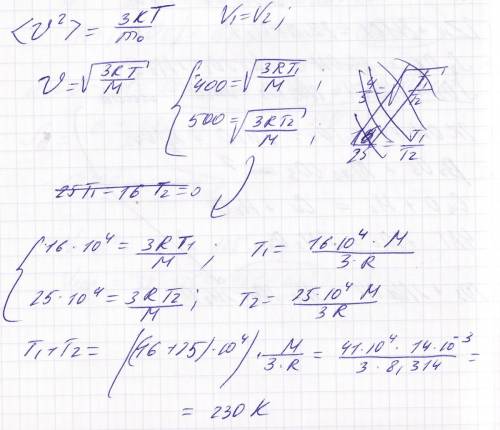 <v²> = 3kT/m₀    V₁ = V₂;
v = √(3RT/M)    { 400 = √(3RT₁/M);
500 = √(3RT₂/M);
25T₁ - 16T₂ = 0
{ 16·10⁴ = 3RT₁/M;    T₁ = 16·10⁴·M/3·R
25·10⁴ = 3RT₂/M;    T₂ = 25·10⁴ M/3R
T₁+T₂ = (16+25)·10⁴)·M/3·R = 41·10⁴·14·10⁻³/3·8,314 =
= 230 K